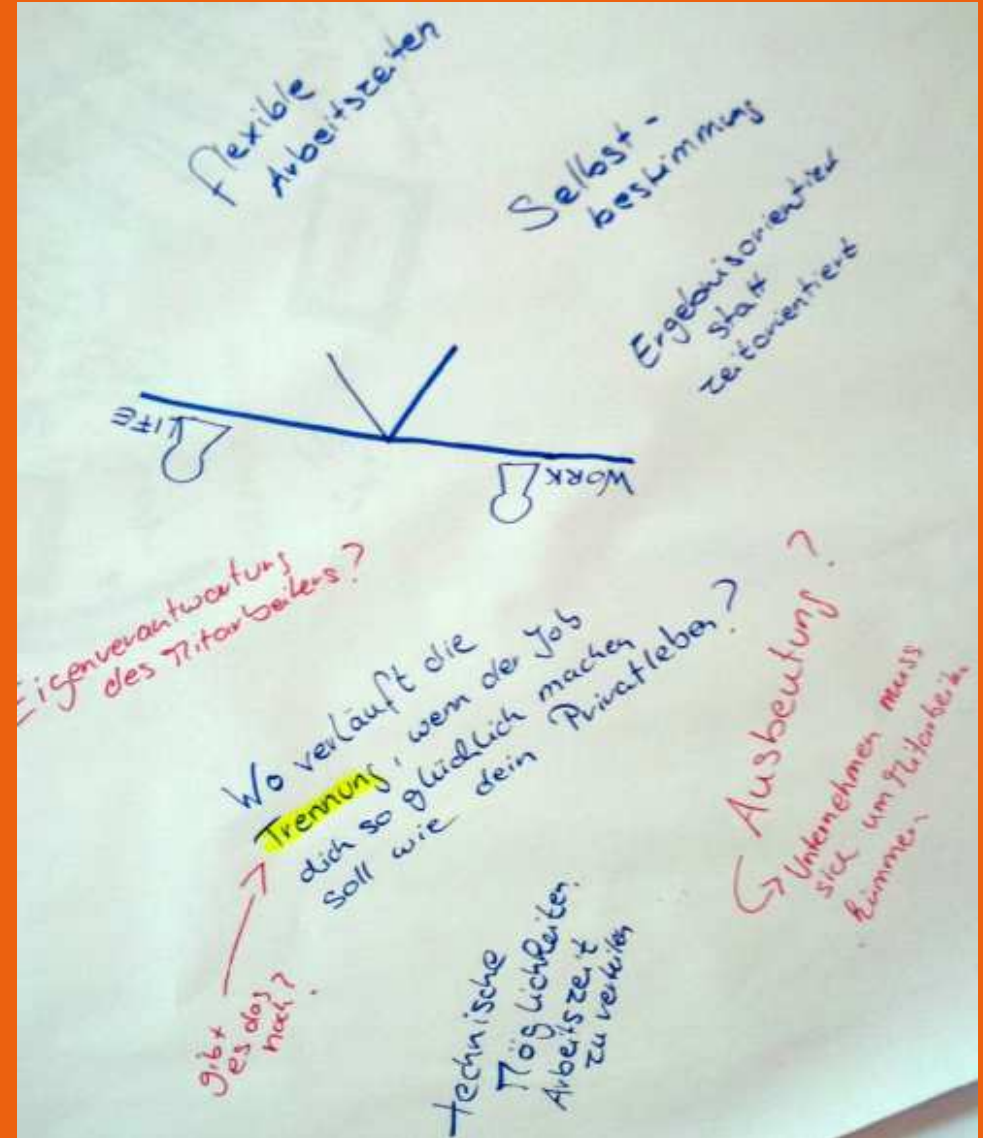 flexible
Arbeitszeiten
Selbst-
bestimmung
Ergebnisorientiert
statt
zeitorientiert
LIFE
WORK
Eigenverantwortung
des Mitarbeiters?
Wo verläuft die
Trennung, wenn der Job
dich so glücklich machen
soll wie dein Privatleben?
gibt
es das
noch?
Ausbeutung?
→ Unternehmen muss
sich um Mitarbeiter
kümmern
technische
Möglichkeiten
Arbeitszeit
zu verteilen